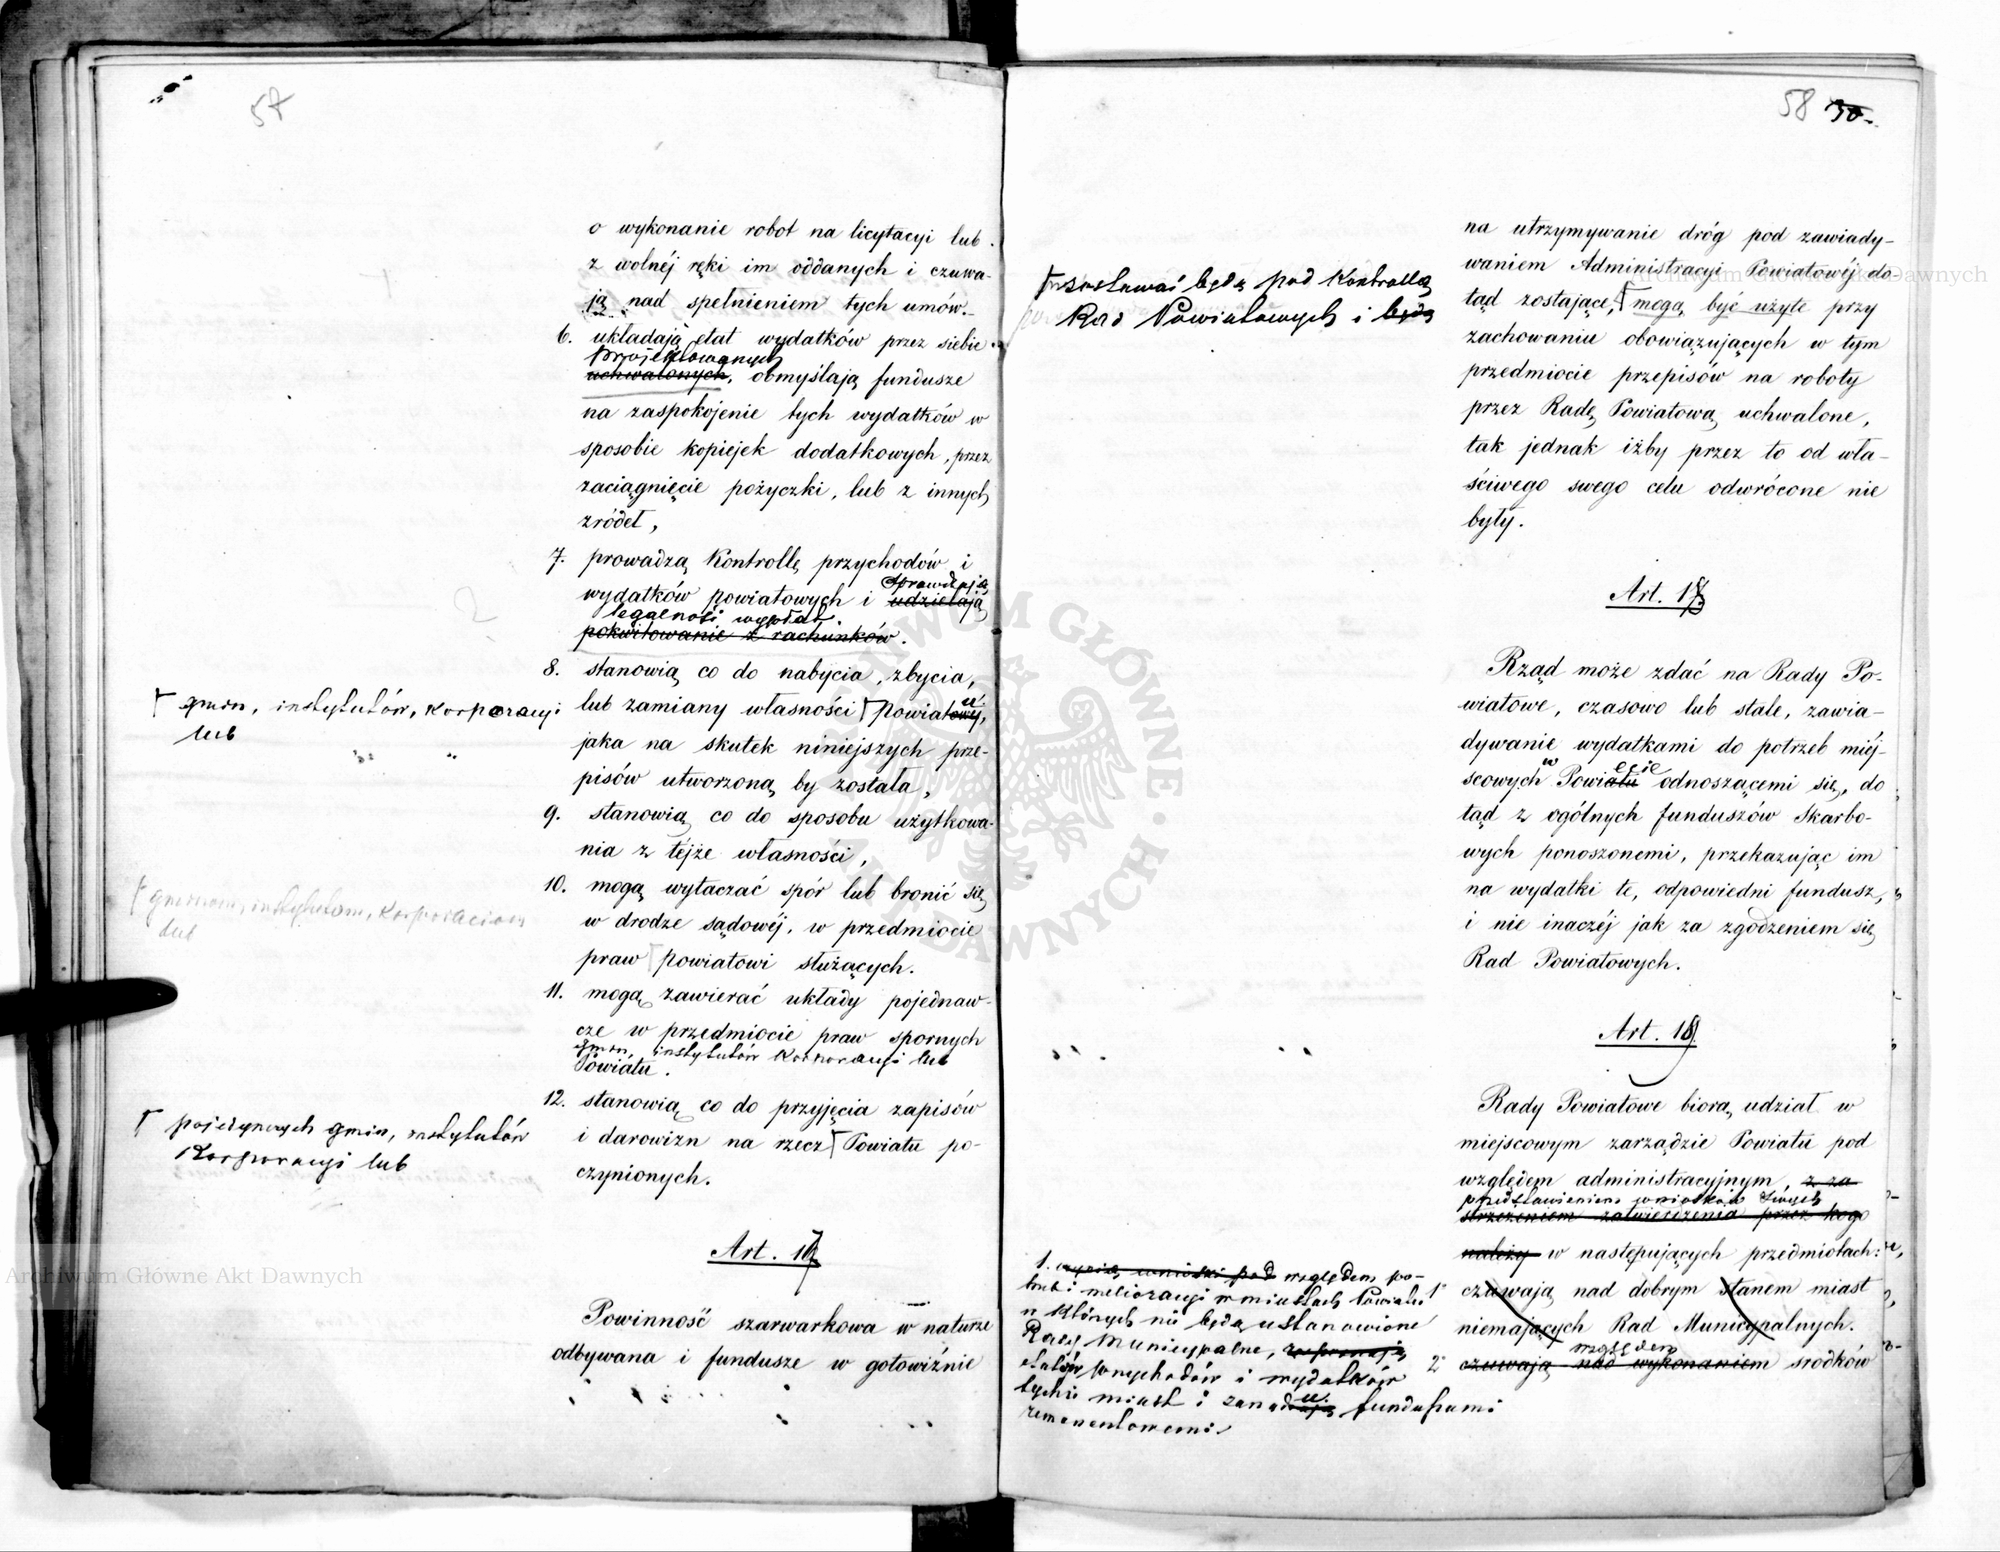 57
o wykonanie robot na licytacyi lub
z wolnéj ręki im oddanych i czuwa-
ją nad spełnieniem tych umów.
6. układają etat wydatków przez siebie
projektowanych
uchwalonych, obmyślają fundusze
na zaspokojenie tych wydatków w
sposobie kopiejek dodatkowych, przez
zaciągnięcie pożyczki, lub z innych
zródeł,
7. prowadzą Kontrollę przychodów i
sprawdzają
wydatków powiatowych i udzielają
legalność wypłat
pokwitowanie z rachunków.
8. stanowią co do nabycia, zbycia,
lub zamiany własności Powiatowéj,
┌ gmin, instytutów, korporacyi
lub
jaka na skutek niniejszych prze-
pisów utworzoną by została,
9. stanowią co do sposobu użytkowa-
nia z téjże własności,
10. mogą wytaczać spór lub bronić się
w drodze sądowéj, w przedmiocie
praw ┌ powiatowi służących.
┌ gminom, instytutom, korporaciom
lub
11. mogą zawierać układy pojednaw-
cze w przedmiocie praw spornych
gmin, instytutów korporacyi lub
Powiatu.
12. stanowią co do przyjęcia zapisów
i darowizn na rzecz ┌ Powiatu po-
czynionych.
┌ pojedynczych gmin, instytutów
Korporacyi lub
Art. 17
Powinność szarwarkowa w naturze
odbywana i fundusze w gotowiźnie
58 30.
na utrzymywanie dróg pod zawiady-
waniem Administracyi Powiatowéj do-
tąd zostające, ┌ mogą być użyte przy
┌ zostawać będą pod Kontrollą
Rad Powiatowych i będą
zachowaniu obowiązujących w tym
przedmiocie przepisów na roboty
przez Radę Powiatową uchwalone,
tak jednak iżby przez to od wła-
ściwego swego celu odwrócone nie
były.
Art. 18
Rząd może zdać na Rady Po-
wiatowe, czasowo lub stale, zawia-
dywanie wydatkami do potrzeb miéj-
scowych w Powiatu odnoszącemi się, do
ecie
tąd z ogólnych funduszów Skarbo-
wych ponoszonemi, przekazując im
na wydatki te, odpowiedni fundusz,
i nie inaczéj jak za zgodzeniem się
Rad Powiatowych.
Art. 19
Rady Powiatowe biorą udział w
miejscowym zarządzie Powiatu pod
względem administracyjnym, z za-
przedstawieniem wniosków swych
strzeżeniem zatwierdzenia przez kogo
należy w następujących przedmiotach:
1° czuwają nad dobrym stanem miast
niemających Rad Municypalnych.
względem
2° czuwają nad wykonaniem srodków
1. wnioski pod względem po-
trzeb i melioracyi w miastach Powiatu
w których nie będą ustanowione
Rady Municypalne,
etatów przychodów i wydatków
tychże miast i funduszami
remanentowemi
Archiwum Główne Akt Dawnych
Archiwum Główne Akt Dawnych
ARCHIWUM GŁÓWNE AKT DAWNYCH